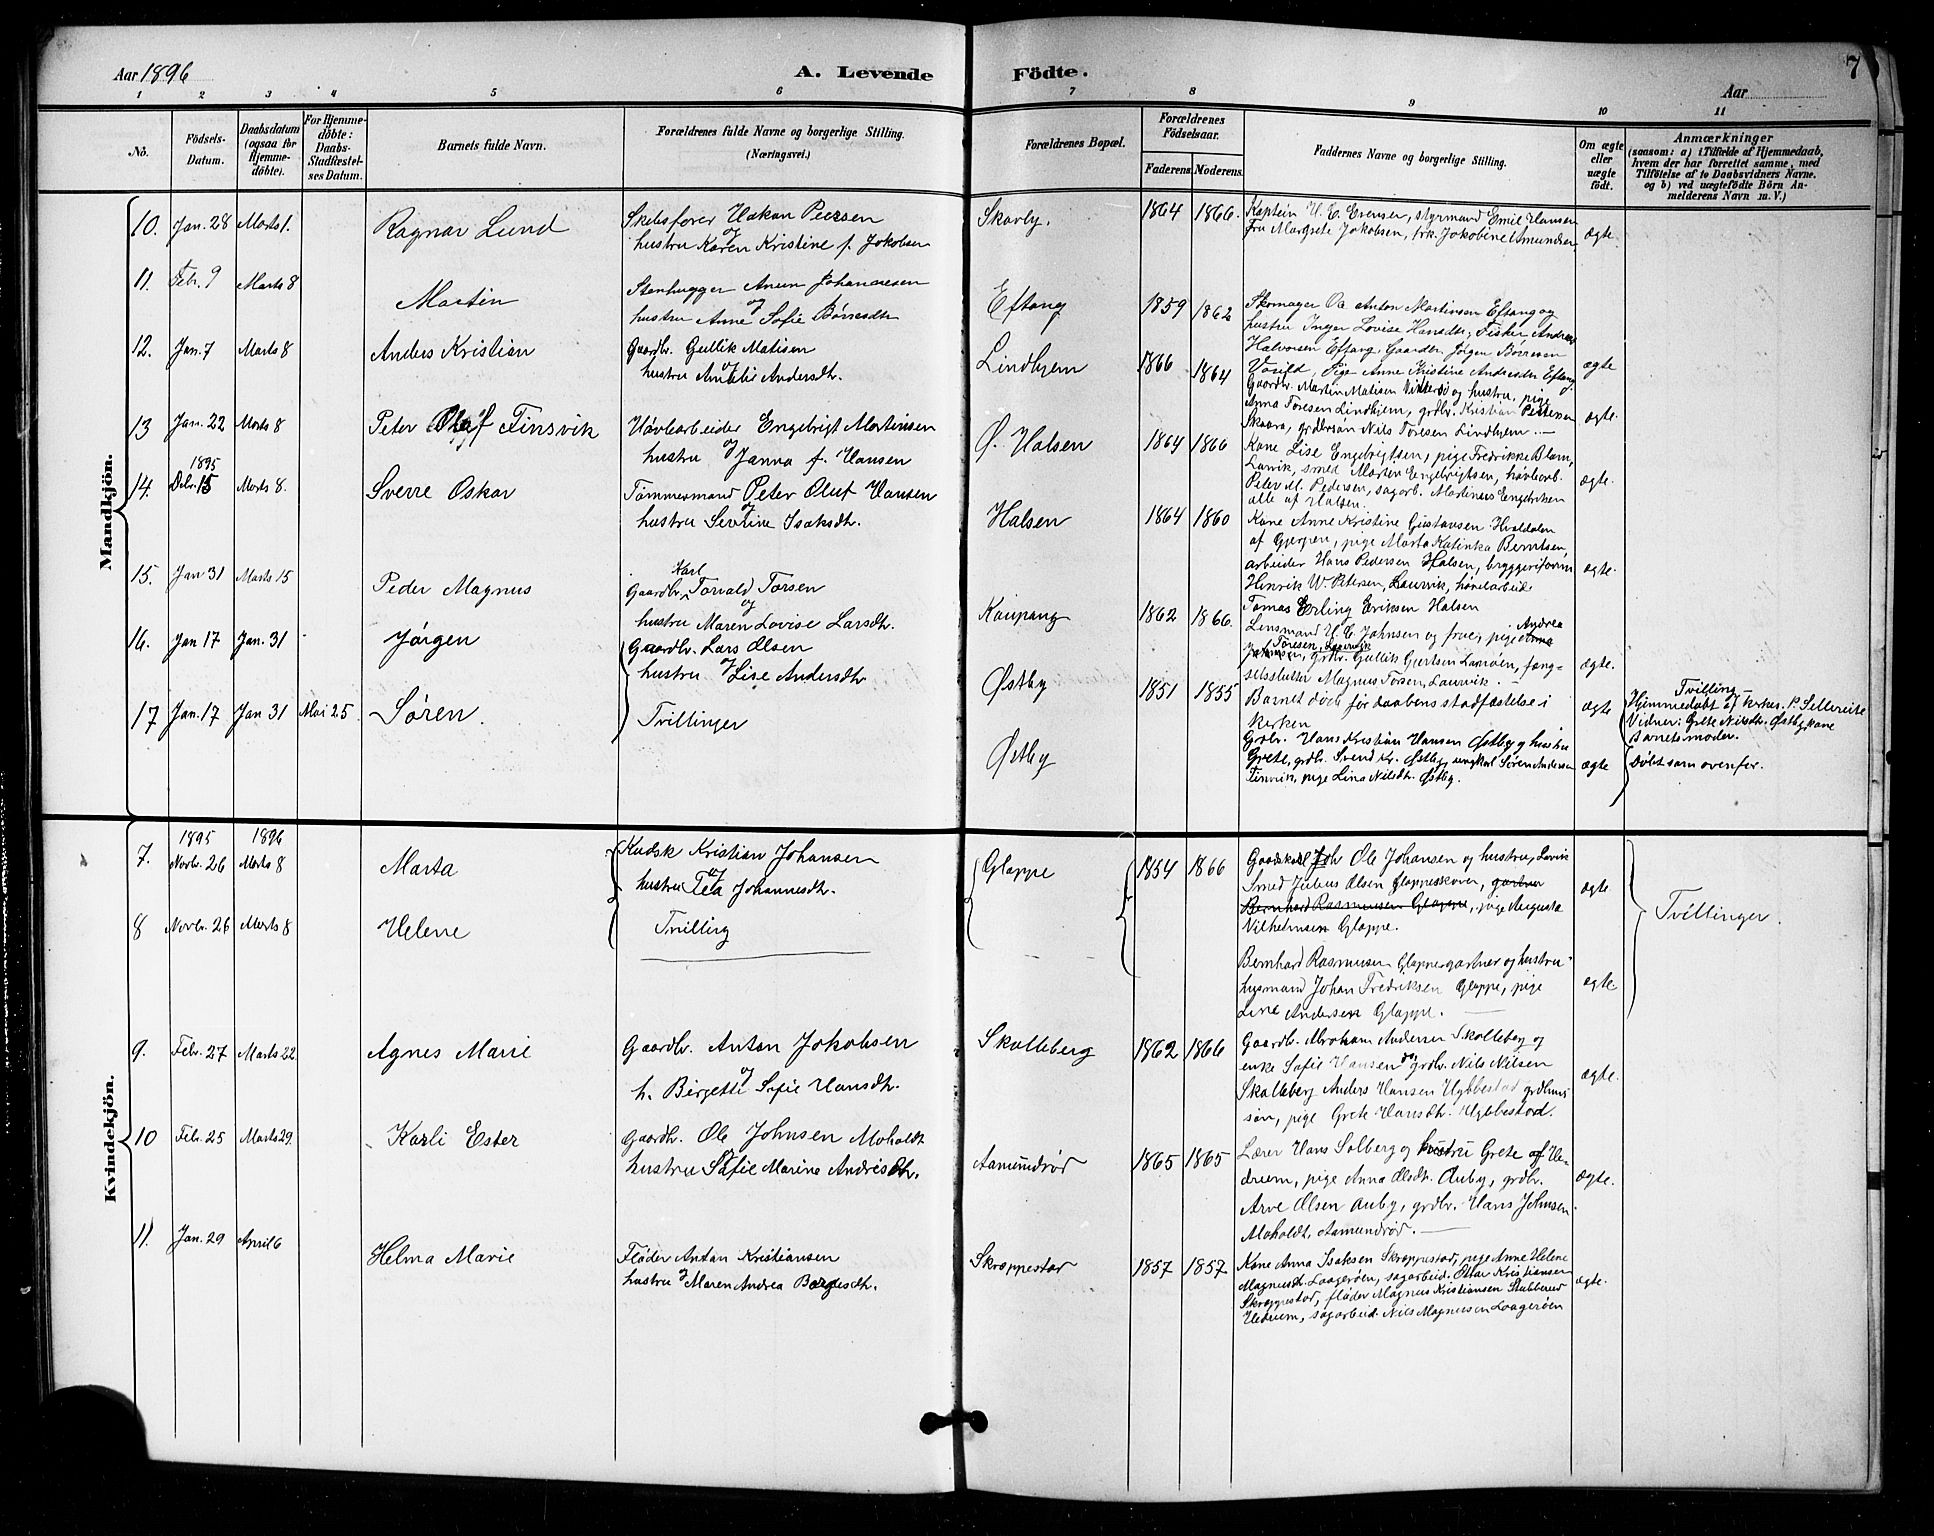 Aar 1896
A. Levende Födte.
7
Aar
1 2 3 4 5 6 7 8 9 10 11
No.
Födsels-Datum.
Daabsdatum (ogsaa for Hjemmedöbte).
For Hjemmedöbte: Daabs-Stadfæstelses Datum.
Barnets fulde Navn.
Forældrenes fulde Navne og borgerlige Stilling. (Næringsvei.)
Forældrenes Bopæl.
Forældrenes Födselsaar.
Faderens
Moderens.
Faddernes Navne og borgerlige Stilling.
Om ægte eller uægte födt.
Anmærkninger
(saasom: a) i Tilfælde af Hjemmedaab, hvem der har forrettet samme, med Tilföielse af to Daabsvidners Navne, og b) ved uægtefödte Börn Anmelderens Navn m. V.)
Mandkjön.
10. Jan. 28 Marts 1. Ragnar Lund
Skibsfører Hakan Peersen
og
hustru Karen Kristine f. Jakobsen
Skavby. 1864 1866.
Kaptein H. C. Evensen, styrmand Emil Hansen
fru Margrete Jakobsen, frk. Jokobine Amundsen
ægte.
11. Febr. 9 Marts 8 Martin
Stenhugger Anun Johannesen
og
hustru Anne Sofie Børresdtr
Eftang 1859 1862
Skomager Ole Anton Martinsen Eftang og
hustru Inger Lovise Hansdtr, Fisker Andreas
Halvorsen Eftang, Gaardbr. Jørgen Børresen
Vasild, Pige Anne Kristine Andersdtr Eftang.
ægte
12. Jan. 7 Marts 8 Anders Kristian
Gaardbr. Gullik Matisen
og
hustru Amalie Andersdtr.
Lindhjem 1866 1864
Gaardbr. Martin Matisen og hustru, pige
Anna Toresen Lindhjem, grdbr. Kristian Pettersen
Skaara, grdbrsøn Nils Toresen Lindhjem.
ægte.
13 Jan. 22 Marts 8 Peter Olaf Finsvik
Høvlearbeider Engebrigt Martinsen
og
hustru Janna f. Hansen
Ø. Halsen 1864 1866
Kone Lise Engebrigtsen, pige Fredrikke Blom,
Larvik, smed Morten Engebrigtsen, høvlearb.
Peter M. Pedersen, sagarb. Martinius Engebriksen
alle af Halsen.
ægte.
1895
14. Debr. 15 Marts 8. Sverre Oskar
Tømmermand Peter Oluf Hansen
og
hustru Sevrine Isaksdtr.
Halsen 1864 1860
Kone Anne Kristine Gustavsen Hvaldalen
af Gjerpen, pige Marta Katinka Berntsen,
arbeider Hans Pedersen Halsen, bryggeriform
Henrik W. Petersen, Laurvik, høvlearbeid
Tomas Erling Eriksen Halsen
ægte.
15. Jan 31 Marts 15 Peder Magnus
Karl
Gaardbr. Torvald Torsen
og
hustru Maren Lovise Larsdtr.
Kaupang 1862 1866.
Lensmand H. C. Johnsen og frue, pige Andrea
Toresen, Laurvik
grdbr. Gullik Gjertsen Lamøen, fængselsslutter Magnus Torsen, Laurvik.
ægte.
16. Jan 17 Jan. 31 Jørgen
Gaardbr. Lars Olsen
og
hustru Lise Andersdtr
Østby 1851 1855
Barnet døde før daabens stadfæstelse i
kirken
ægte
Tvilling
Hjemmedøbt af kirkes. P. Settereite
Vidner: Grete Nilsdtr. Østby, kone
barnets moder.
17 Jan. 17 Jan 31 Mai 25 Søren.
Tvillinger
Østby
Grdbr. Hans Kristian Hansen Østby og hustru
Grete, grdbr. Svend Kr. Østby, ungkarl Søren Andersen
Finvik, pige Lina Nilsdtr. Østby.
ægte
Døbt som ovenfor.
Kvindekjön.
1895 1896
7. Novbr. 26 Marts 8 Marta
Kudsk Kristian Johansen
og
hustru Tea Johannesdtr.
Gloppe 1854 1866
Gaardskarl Ole Johansen og hustru, Larvik
Smed Julius Olsen Gloppeskoven, gartner
Bernhard Rasmussen Gloppe, pige Augusta
Vilhelmsen Gloppe.
ægte
Tvillinger.
8 Novbr. 26 Marts 8 Helene
Tvilling
Bernhard Rasmussen Gloppe gartner og hustru
husmand Johan Fredriksen Gloppe, pige
Line Andersen Gloppe.
ægte.
9. Febr. 27 Marts 22. Agnes Marie
Gaardbr. Anton Jokobsen
og
h. Birgette Sofie Hansdtr.
Skalleberg 1862 1866
Gaardbr. Abraham Andersen Skalleberg og
enke Sofie Hansen og grdbr. Nils Nilsen
Skalleberg Anders Hansen Hybbestad grdbrssøn, pige Grete Hansdtr. Hybbestad.
ægte.
10 Febr. 25 Marts 29. Karli Ester
Gaardbr. Ole Johnsen Moholdt
og
hustru Sofie Marine Andrisdtr.
Aamundrød 1865 1865
Lærer Hans Solberg og hustru Grete af Hedrum, pige Anna Olsdtr. Auby, grdbr.
Arve Olsen Auby, grdbr. Hans Johnsen
Moholdt, Aamundrød.
ægte.
11. Jan. 29 April 6 Helma Marie
Fløder Anton Kristiansen
og
hustru Maren Andrea Borgesdtr.
Skreppestad 1857 1857
Kone Anna Isaksen Skreppestad, pige Anne Helene
Magnusdtr. Laagerøen, sagarbeid. Ottar Kristiansen
Skreppestad, fløder Magnus Kristiansen Stubberød
Hedrum, sagarbeid. Nils Magnussen Laagerøen
ægte.